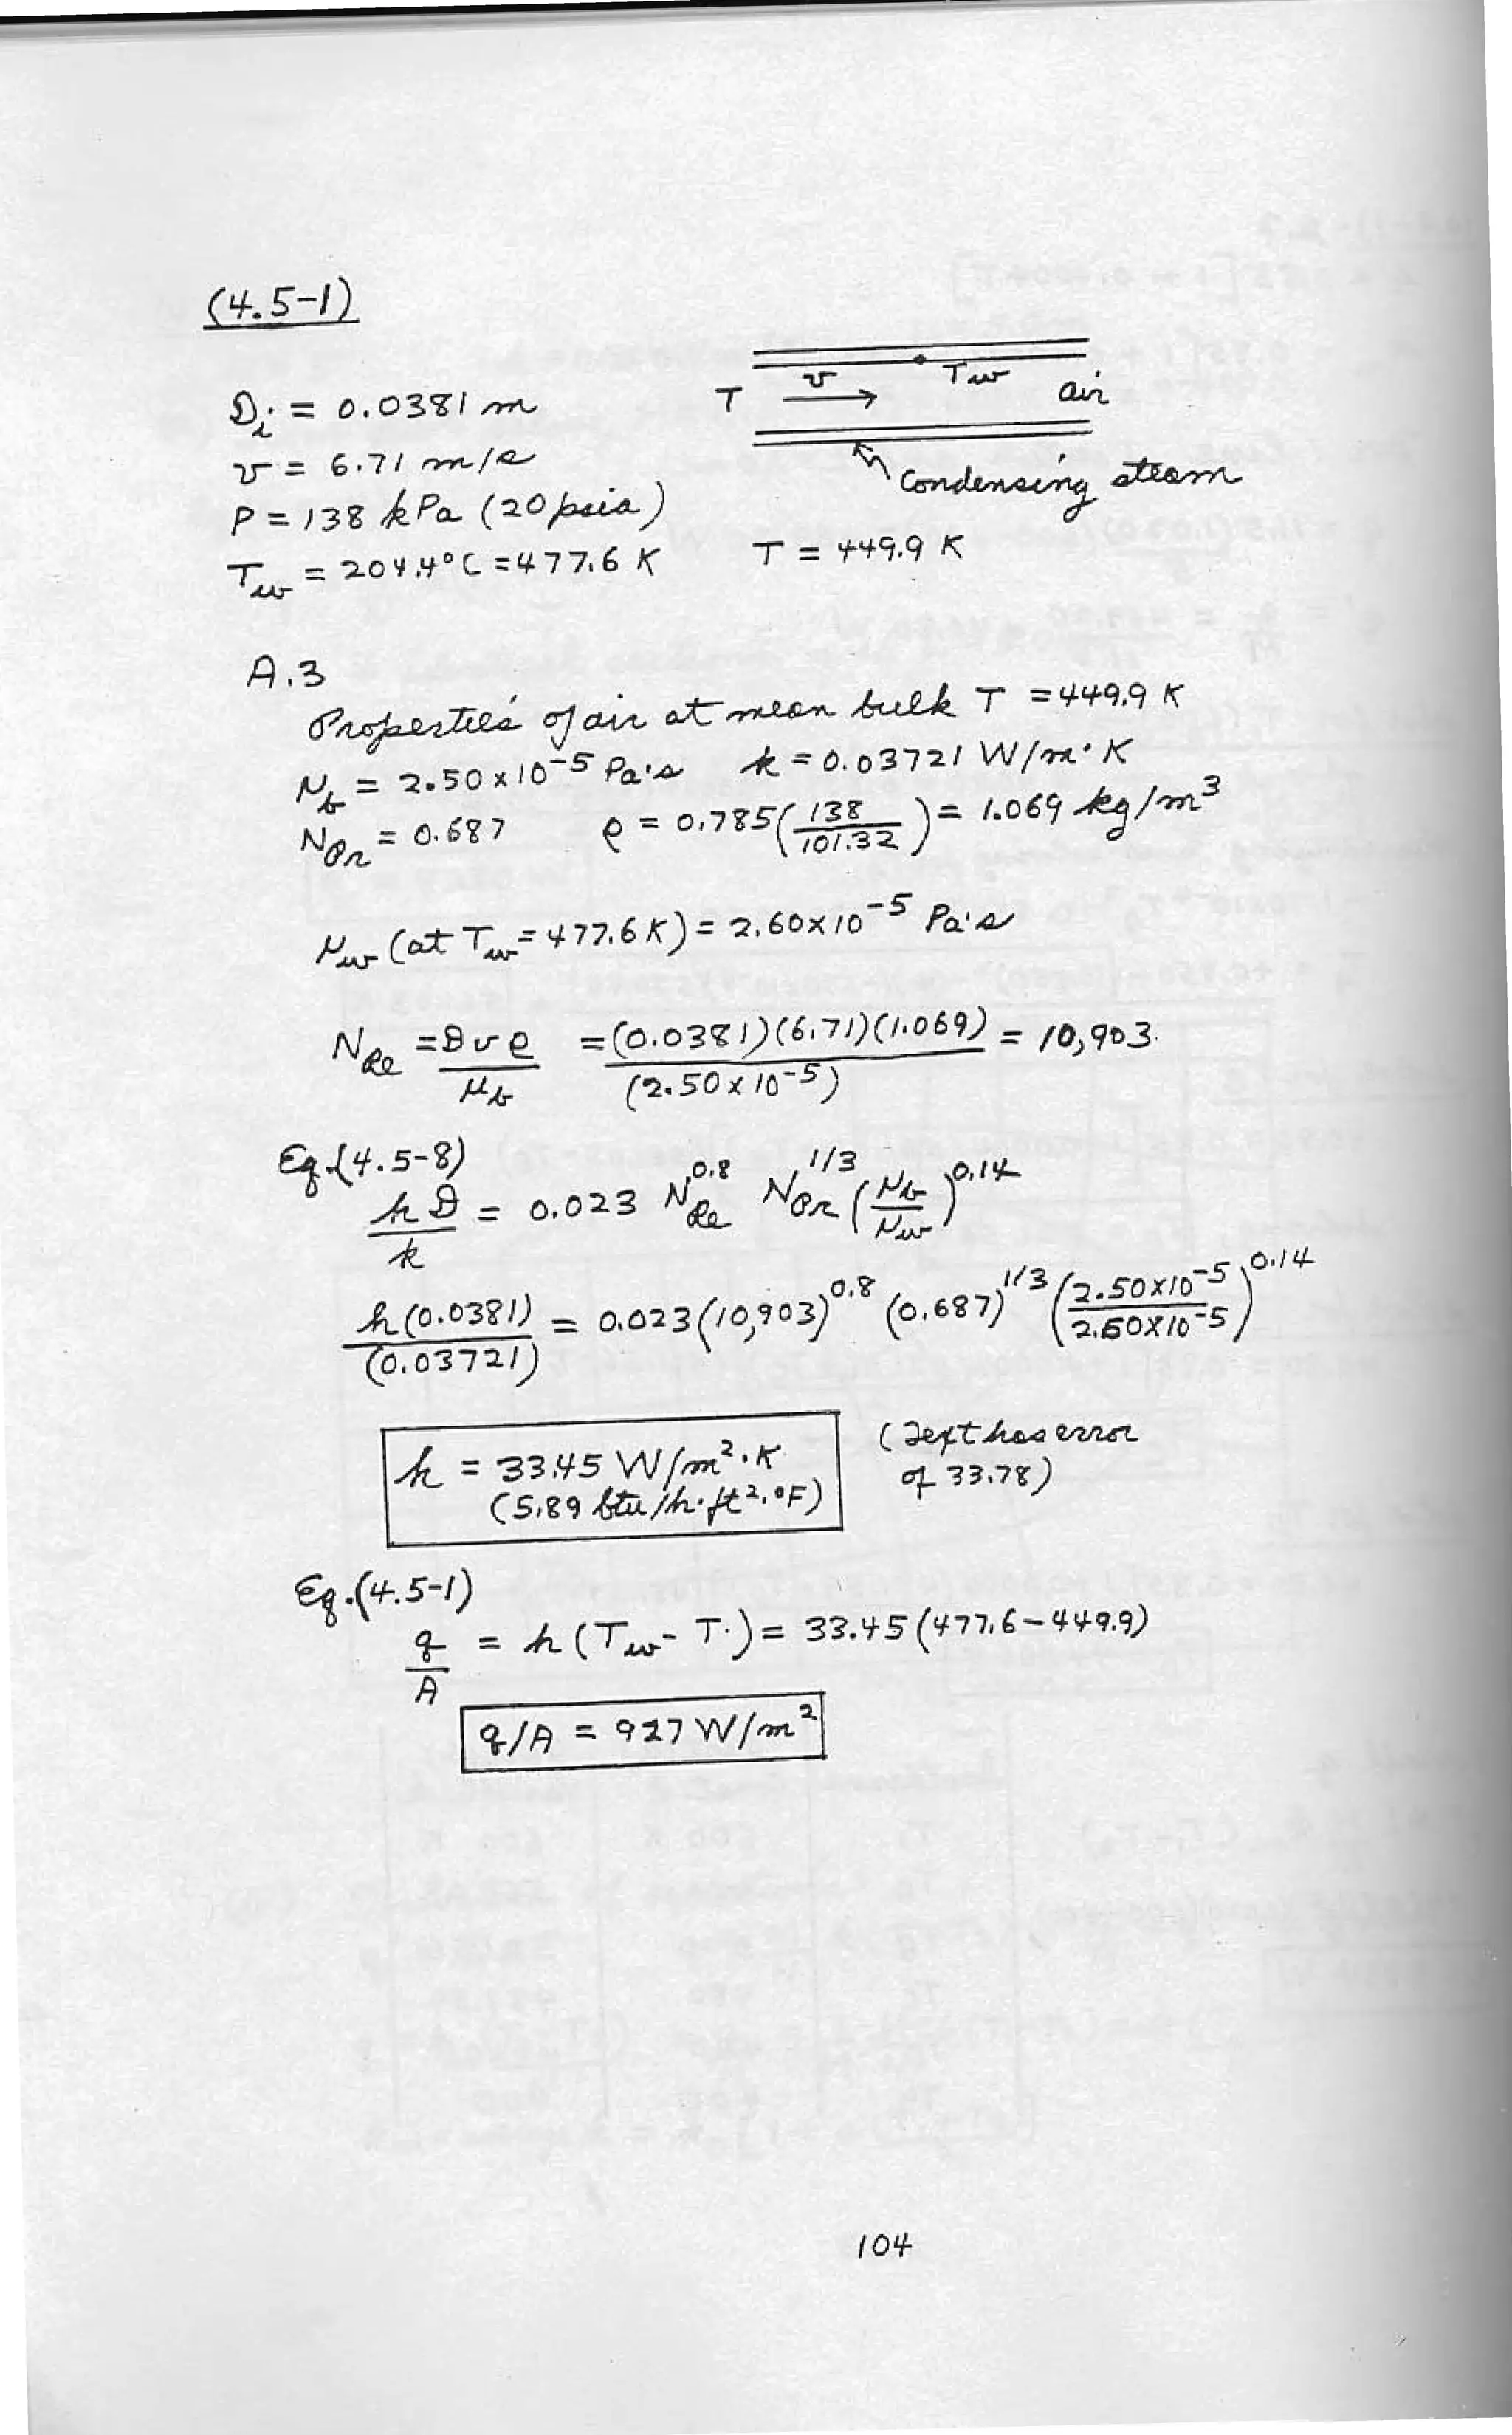 (4.5-1)
Di = 0.0381 m
v = 6.71 m/s
P = 138 kPa (20 psia)
Tw = 204.4°C = 477.6 K
T v Tw air
condensing steam
T = 449.9 K
A.3
Properties of air at mean bulk T = 449.9 K
μb = 2.50 x 10^-5 Pa·s k = 0.03721 W/m·K
NPr = 0.687 ρ = 0.785(138/101.32) = 1.069 kg/m^3
μw (at Tw = 477.6 K) = 2.60 x 10^-5 Pa·s
NRe = Dvρ/μb = (0.0381)(6.71)(1.069)/(2.50 x 10^-5) = 10,903
Eq.(4.5-8)
hD/k = 0.023 NRe^0.8 NPr^1/3 (μb/μw)^0.14
h(0.0381)/(0.03721) = 0.023(10,903)^0.8 (0.687)^1/3 (2.50x10^-5/2.60x10^-5)^0.14
h = 33.45 W/m^2·K
(5.89 btu/h·ft^2·°F)
(Text has error
of 33.78)
Eq.(4.5-1)
q/A = h(Tw - T) = 33.45(477.6 - 449.9)
q/A = 927 W/m^2
104